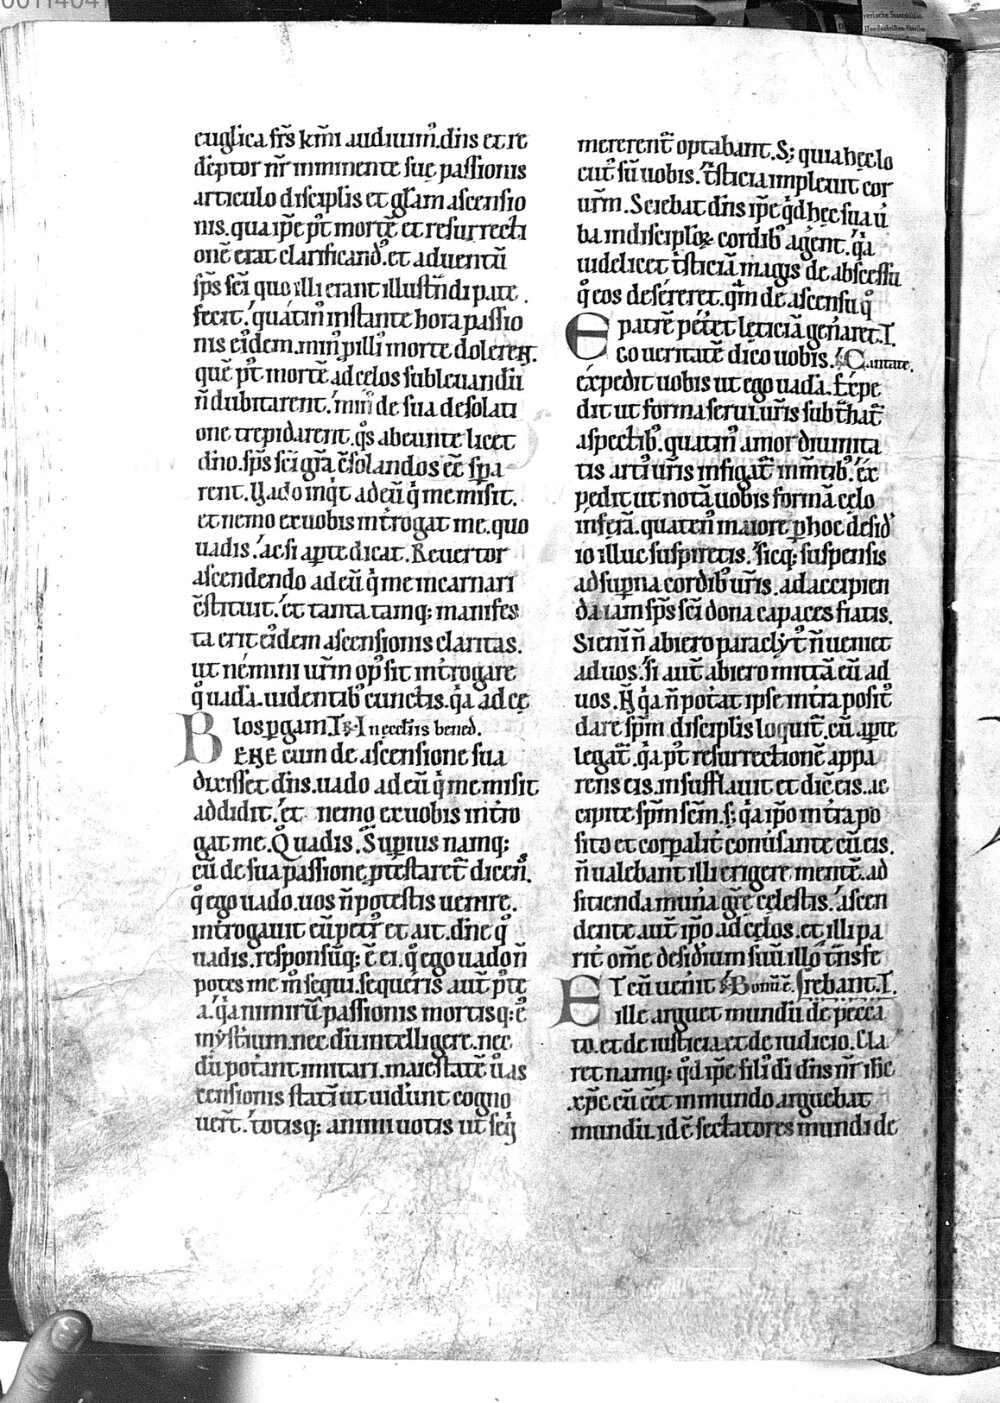 euglica fr̄s km̄i audiuim᷒. dn̄s et re
dēptor nr̄ imminente sue passionis
articulo discip̄lis et gl̄am ascensio
nis. qua ip̄e p᷒t mortē et resurrecti
onē erat clarificand᷒. et aduentū
sp̄s sc̄i quo illi erant illustn̄di pate
fecit. quatin᷒ instante hora passio
nis eidem. min᷒ p illi᷒ morte dolerent.
quē p᷒t mortē ad celos subleuandū
n̄ dubitarent. min᷒ de sua desolati
one trepidarent. q᷒s abeunte licet
dn̄o. sp̄s sc̄i gr̄a c̄solandos ēē spa
rent. Uado inq̇t ad eū q̇ me misit.
et nemo ex uobis int̄rogat me. quo
uadis. ac si apte dicat. Reuertor
ascendendo ad eū q̇ me incarnari
c̄stituit. et tanta tamq; manifes
ta erit eidem ascensionis claritas.
ut nemini ur̄m op᷒ sit int̄rogare
q᷒ uada. uidentib᷒ cunctis. q̇a ad ce
los pgam. T
BENE cum de ascensione sua
dixisset dn̄s. uado ad eū q̇ me misit
addidit. et nemo ex uobis int̄ro
gat me. Quadis. Supius namq;
cū de sua passione p̄testaret᷒ dicen̄.
q᷒ ego uado. uos n̄ potestis uenire.
int̄rogauit eū petr᷒ et ait. dn̄e q᷒
uadis. responsūq; ē ei. q᷒ ego uado n̄
potes me m᷒ sequi. sequeris aut̄ p᷒te
a. q̇a nimirū passionis mortisq; ei᷒
mysteriū. nec dū intelligere. nec
dū potant imitari. maiestatē ū as
censionis statī ut uidunt cogno
uer̄t. totisq; animi uotis ut seq̇
mererent᷒ optabant. S; quia hec lo
cut᷒ sū uobis. t̄sticia impleuit cor
ur̄m. Sciebat dn̄s ip̄e q̇d hec sua ū
ba in discip̄loꝝ cordib᷒ agent. q̇a
uidelicet t̄sticiā magis de abscessu
q᷒ eos desereret. q̇m de ascensu q᷒
patrē petet leticiā genaret. T
Ego ueritatē dico uobis. Cantate.
expedit uobis ut ego uadā. Expe
dit ut forma serui ur̄is subt̄hat᷒
aspectib᷒. quatin᷒ amor diuinita
tis arti᷒ ur̄is infigat᷒ m̄ntib᷒. Ex
pedit ut notā uobis formā celo
inferā. quaten᷒ maiore p hoc desid᷒
io illuc suspiretis. Sicq; suspensis
ad supna cordib᷒ ur̄is. ad accipien
da iam sp̄s sc̄i dona capaces fiatis.
Si eni n̄ abiero paraclyt᷒ n̄ ueniet
ad uos. si aut̄ abiero mittā eū ad
uos. N̄ q̇a n̄ potat ipse int̄ra posit᷒
dare sp̄m discip̄lis loquit᷒. cū apte
legat᷒. q̇a p᷒t resurrectionē appa
rens eis. insufflauit et dic̄ eis. ac
cipite sp̄m sc̄m. s; q̇a ip̄o int̄ra po
sito et corpalit̄ conūsante cū eis.
n̄ ualebant illi erigere mentē. ad
sitienda muna gr̄e celestis. ascen
dente aut̄ ip̄o ad celos. et illi pa
rit̄ om̄e desidium suū illo t̄nsfe
rebant. T.
ET cū uenit
ille arguet mundū de pecca
to. et de iusticia. et de iudicio. Cla
ret namq; q̇d ip̄e fili᷒ di dn̄s nr̄ ihc
xp̄c cū eēt in mundo arguebat
mundū. id ē sectatores mundi de